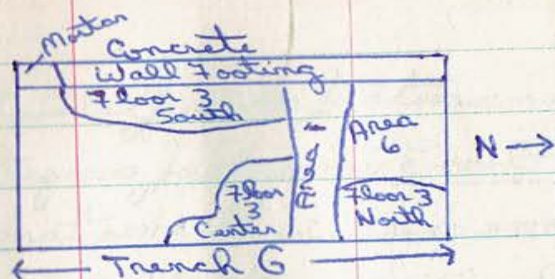 Mortar
Concrete
Wall Footing
Floor 3
South
Area 1
Area
6
N
Floor
3
Center
Floor 3
North
Trench G